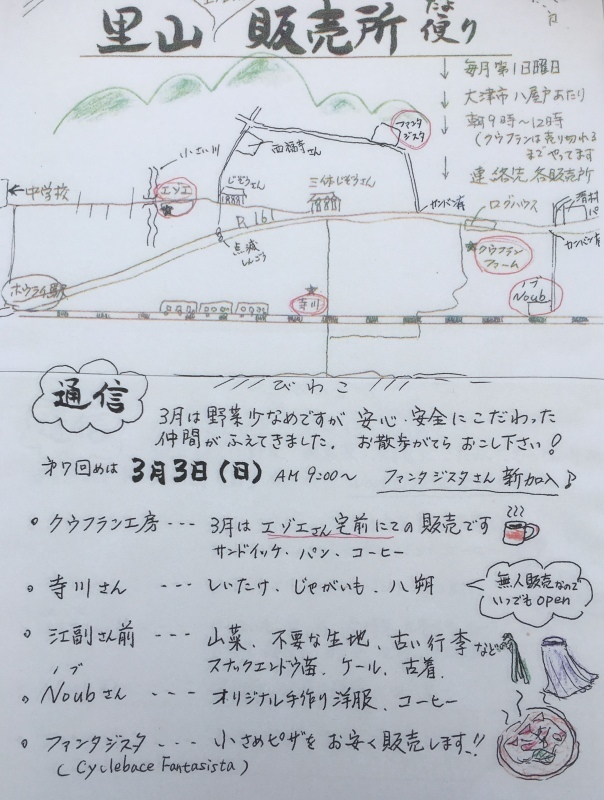 里山 販売所 便り
たよ
↓ 毎月第1日曜日
↓ 大津市 八屋戸あたり
↓ 朝9時〜12時
(クウフランは売り切れる
までやってます
↓ 連絡先 各販売所
ファンタ
ジスタ
西福寺さん
小さい川
←中学校
エゾエ
じぞうさん
三体じぞうさん
カンバン有
ログハウス
カンバン有
R161
点滅
しんごう
クウフラン
ファーム
ノブ
Noub
ホウライ駅
寺川
びわこ
通信
3月は野菜少なめですが 安心・安全にこだわった
仲間がふえてきました。 お散歩がてら おこし下さい!
第7回めは 3月3日(日) AM 9:00〜 ファンタジスタさん 新加入♪
・クウフラン工房 --- 3月は エゾエさん宅前にての販売です
サンドイッチ、パン、コーヒー
・寺川さん --- しいたけ、じゃがいも、八朔
無人販売なので
いつでもopen
・江副さん前 --- 山菜、不要な生地、古い行李など
スナックエンドウ苗、ケール、古着、
ノブ
・Noubさん --- オリジナル手作り洋服、コーヒー
・ファンタジスタ --- 小さめピザを お安く販売します!!
(Cyclebace Fantasista)